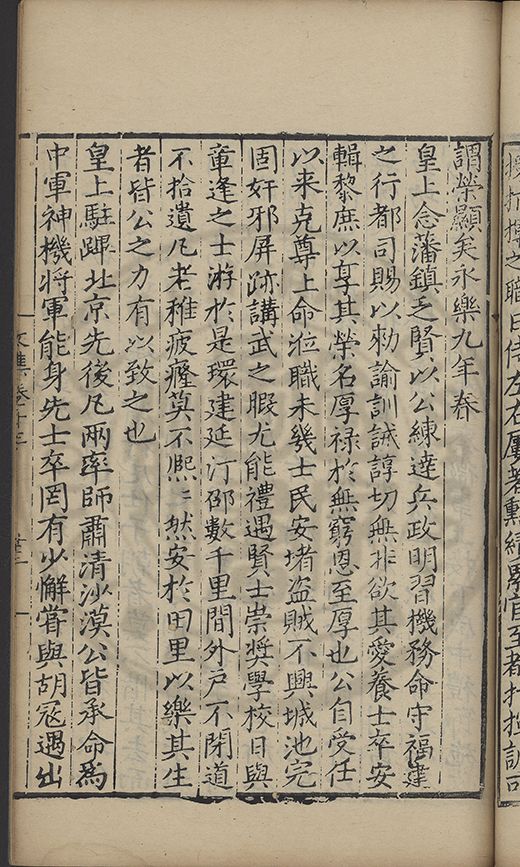 謂榮顯矣永樂九年春
皇上念藩鎮乏賢以公練達兵政明習機務命守福建
之行都司賜以勑諭訓誡諄切無非欲其愛養士卒安
輯黎庶以享其榮名厚禄於無窮恩至厚也公自受任
以来克尊上命涖職未幾士民安堵盗賊不興城池完
固奸邪屏跡講武之暇尤能禮遇賢士崇奬學校日與
章逢之士游於是環建延汀邵數千里間外戸不閉道
不拾遺凡老稚疲癃莫不熈〻然安於田里以樂其生
者皆公之力有以致之也
皇上駐蹕北京先後凡兩率師肅清沙漠公皆承命為
中軍神機將軍能身先士卒罔有少懈嘗與胡寇遇出
文集卷十三